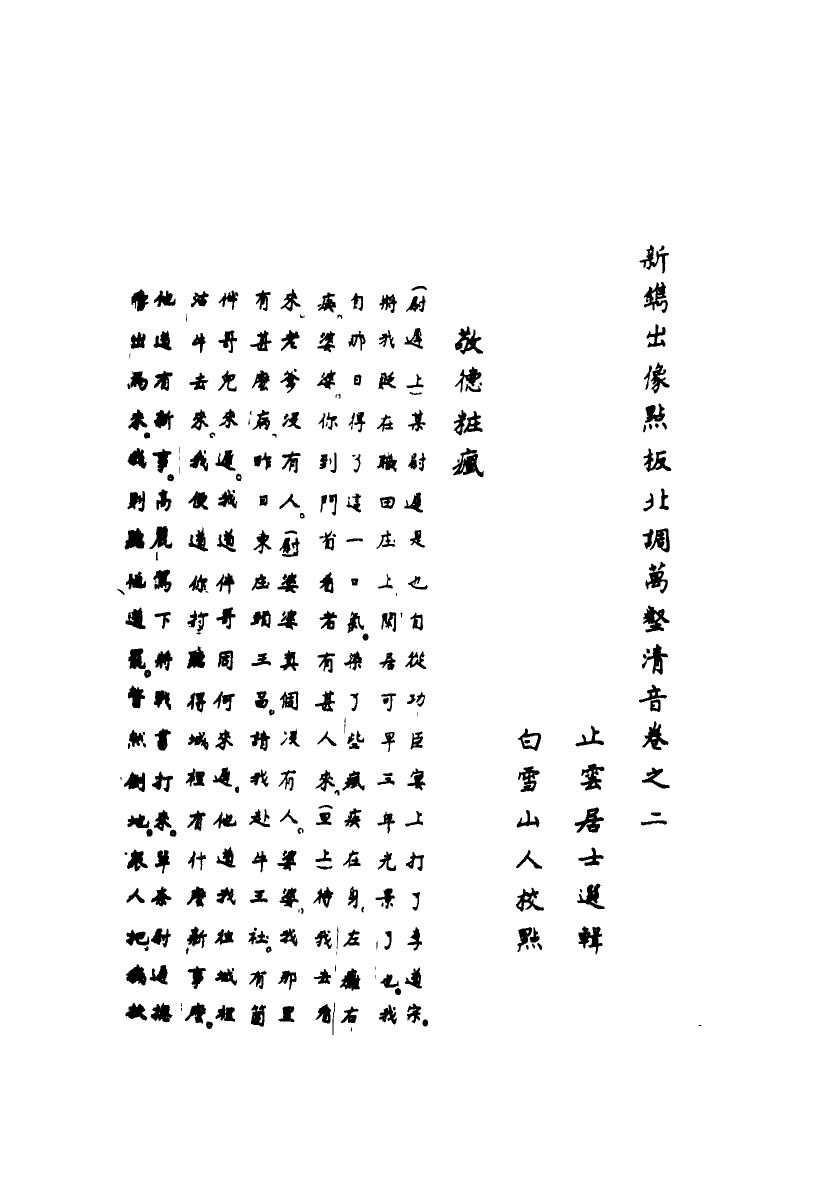 新鐫出像點板北調萬壑清音卷之二
止雲居士選輯
白雪山人校點
敬德粧瘋
(尉遲上)某尉遲是也自從功臣宴上打了李道宗。
將我貶在職田庄上閑居可早三年光景了也。我
自那日得了這一口氣。染了些瘋疾在身、左癱右
瘓。婆婆。你到門首看者有甚人來。(旦上)待我去看
來。老爹沒有人。(尉)婆婆真個沒有人。婆婆。我那里
有甚麼病。昨日東庄頭王昌。請我赴牛王社。有箇
伴哥兒來遲。我道伴哥周何來遲。他道我往城裡
沽牛去來。我便道你打聽得城裡有什麼新事麼。
他道有新事。高麗駕下將戰書打來。單奈尉遲搦
出馬來。我則聽他道罷。瞥然倒地。衆人把我扶